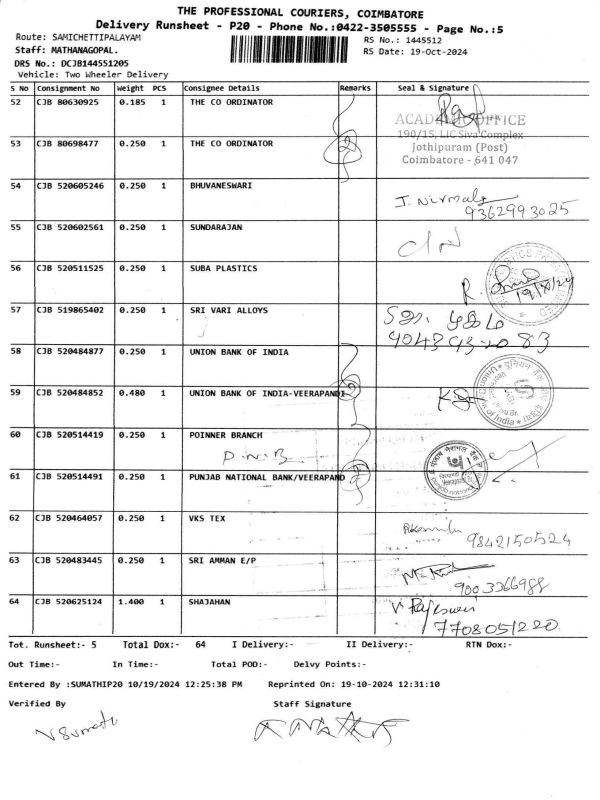 THE PROFESSIONAL COURIERS, COIMBATORE
Delivery Runsheet - P20 - Phone No.:0422-3505555 - Page No.:5
Route: SAMICHETTIPALAYAM
RS No.: 1445512
Staff: MATHANAGOPAL.
RS Date: 19-Oct-2024
DRS No.: DCJB144551205
Vehicle: Two Wheeler Delivery
S No Consignment No Weight PCS Consignee Details Remarks Seal & Signature
52 CJB 80630925 0.185 1 THE CO ORDINATOR
190/15, LIC Siva Complex
53 CJB 80698477 0.250 1 THE CO ORDINATOR 2 Jothipuram (Post)
Coimbatore - 641 047
54 CJB 520605246 0.250 1 BHUVANESWARI
J. Nirmala
9362993025
55 CJB 520602561 0.250 1 SUNDARAJAN
56 CJB 520511525 0.250 1 SUBA PLASTICS
19/10/24
57 CJB 519865402 0.250 1 SRI VARI ALLOYS
58 CJB 520484877 0.250 1 UNION BANK OF INDIA
59 CJB 520484852 0.480 1 UNION BANK OF INDIA-VEERAPANDI
60 CJB 520514419 0.250 1 POINNER BRANCH
P.N.B
61 CJB 520514491 0.250 1 PUNJAB NATIONAL BANK/VEERAPAND
62 CJB 520464057 0.250 1 VKS TEX
9842150524
63 CJB 520483445 0.250 1 SRI AMMAN E/P
9003266988
64 CJB 520625124 1.400 1 SHAJAHAN V. Rajeswari
7708051220
Tot. Runsheet:- 5 Total Dox:- 64 I Delivery:- II Delivery:- RTN Dox:-
Out Time:- In Time:- Total POD:- Delvy Points:-
Entered By :SUMATHIP20 10/19/2024 12:25:38 PM Reprinted On: 19-10-2024 12:31:10
Verified By Staff Signature
V Sumathi